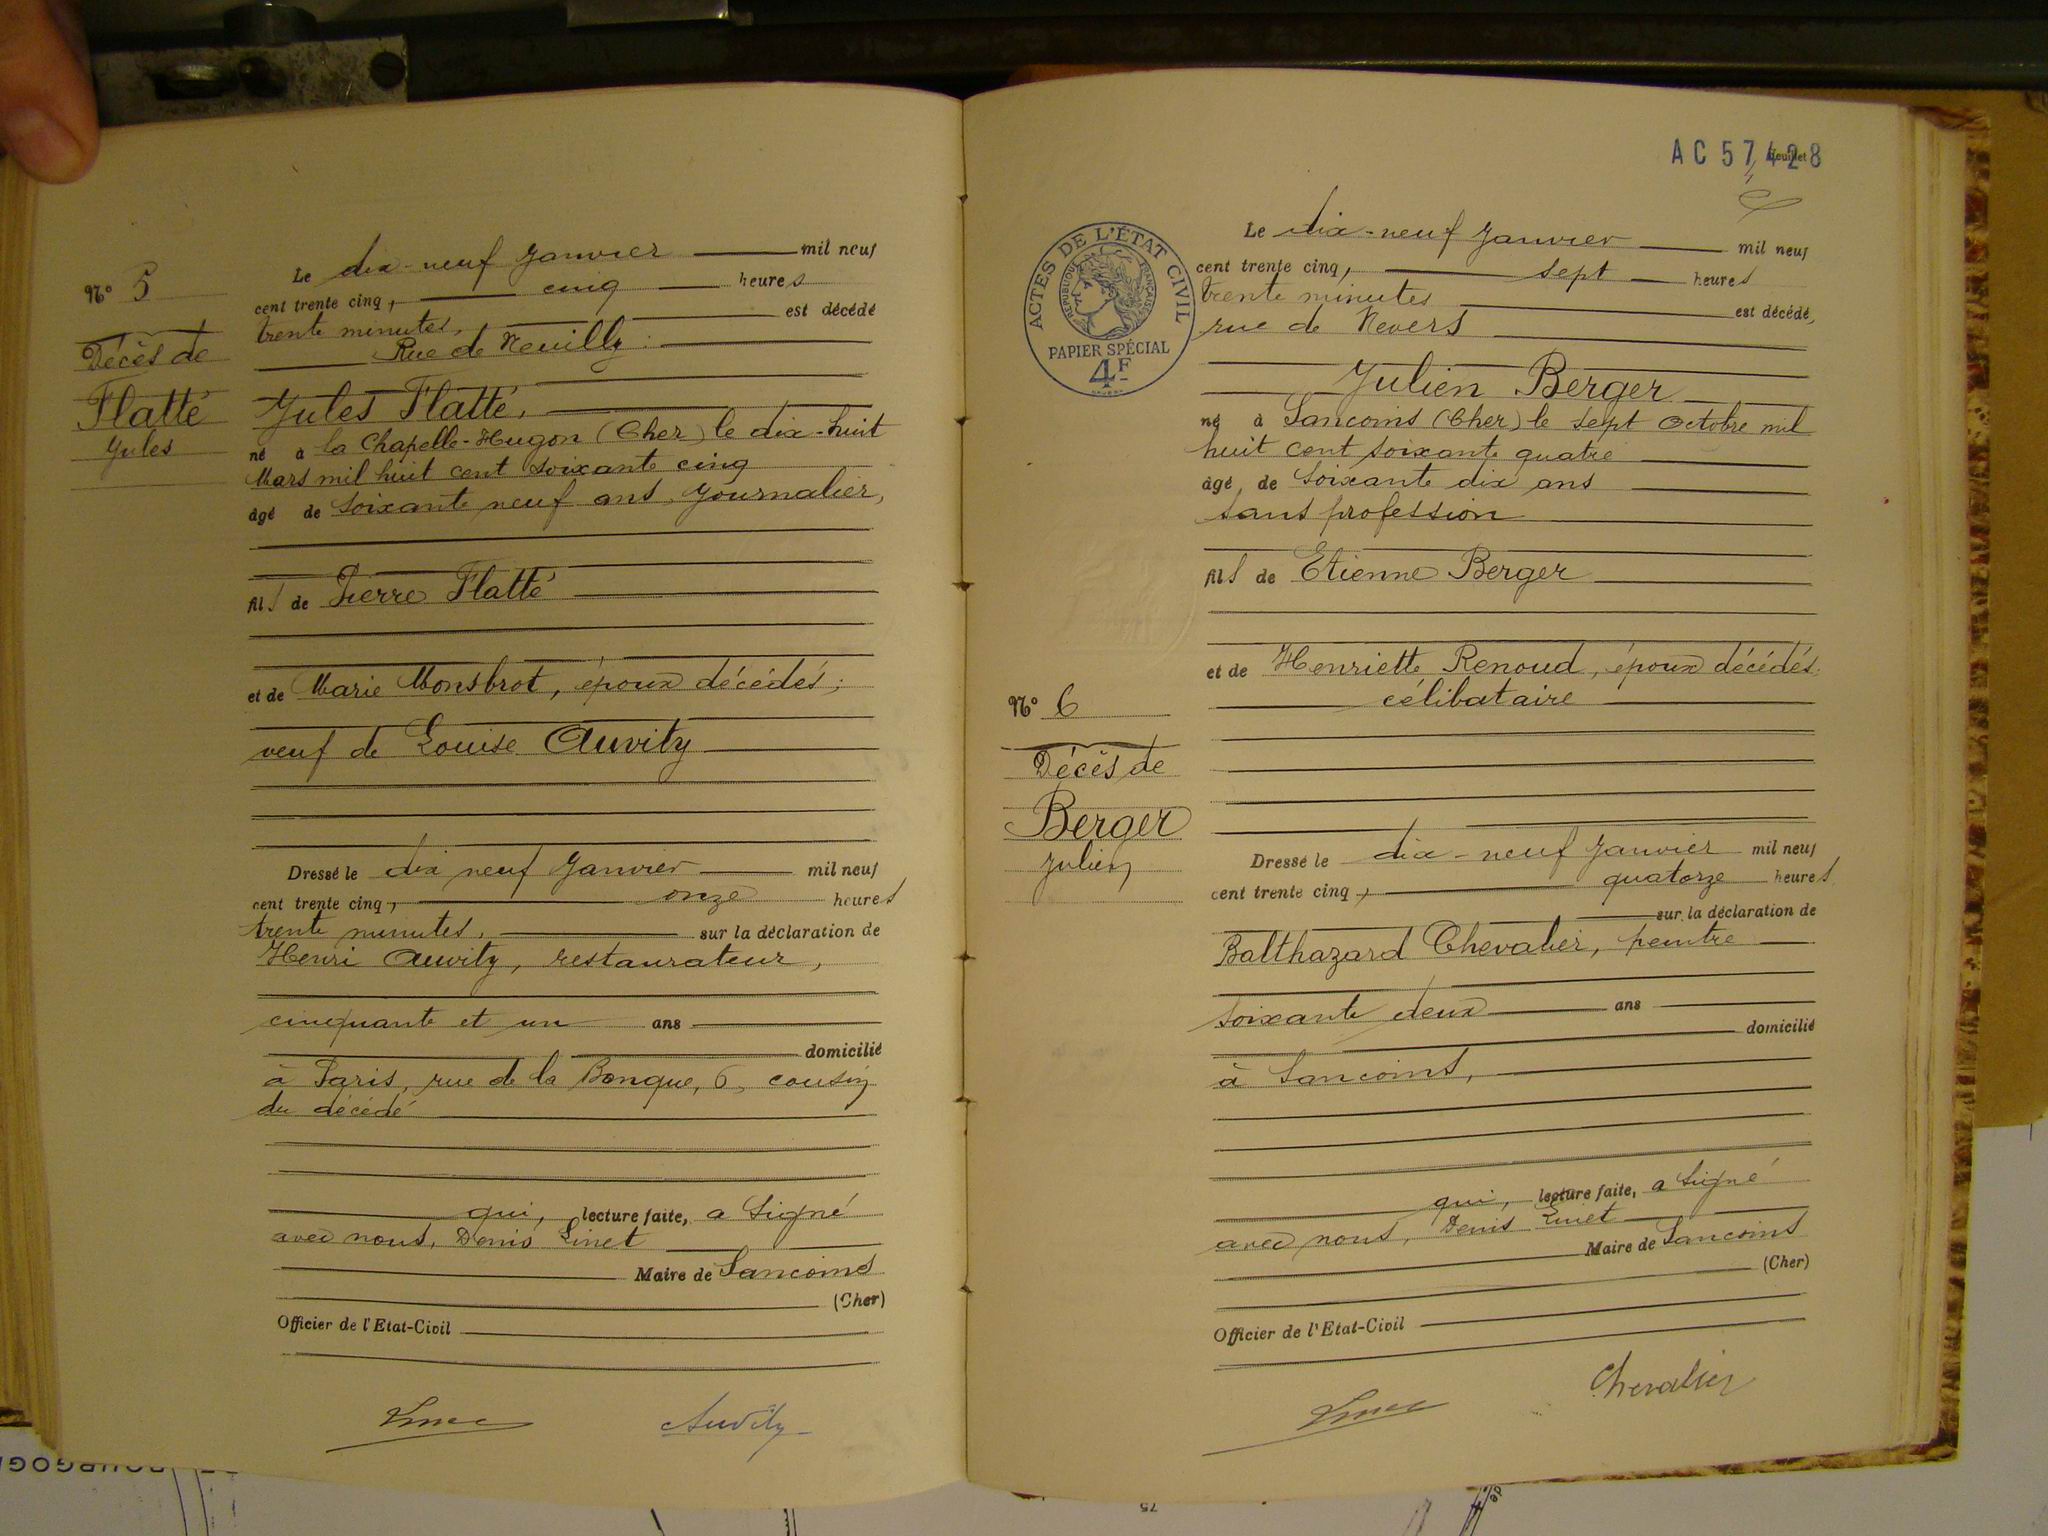 N° 5
Décès de
Flatté
Jules
Le dix-neuf Janvier mil neuf
cent trente cinq, cinq heures
trente minutes, est décédé
Rue de Neuilly.
Jules Flatté,
né à la Chapelle-Hugon (Cher) le dix-huit
Mars mil huit cent soixante cinq
âgé de soixante neuf ans, Journalier,
fils de Pierre Flatté
et de Marie Monsbrot, époux décédés;
veuf de Louise Auvity
Dressé le dix neuf Janvier mil neuf
cent trente cinq, onze heures
trente minutes, sur la déclaration de
Henri Auvity, restaurateur,
cinquante et un ans
domicilié
à Paris, rue de la Banque, 6, cousin
du décédé
qui, lecture faite, a signé
avec nous, Denis Linet
Maire de Sancoins
(Cher)
Officier de l'Etat-Civil
Auvity
AC 57428
Feuillet
ACTES DE L'ÉTAT CIVIL
RÉPUBLIQUE FRANÇAISE
PAPIER SPÉCIAL
4F
N° 6
Décès de
Berger
Julien
Le dix-neuf Janvier mil neuf
cent trente cinq, sept heures
trente minutes est décédé,
rue de Nevers
Julien Berger
né à Sancoins (Cher) le sept Octobre mil
huit cent soixante quatre
âgé de soixante dix ans
sans profession
fils de Etienne Berger
et de Henriette Renoud, époux décédés.
célibataire
Dressé le dix-neuf Janvier mil neuf
cent trente cinq, quatorze heures
sur la déclaration de
Balthazard Chevalier, peintre
soixante deux ans
domicilié
à Sancoins,
qui, lecture faite, a signé
avec nous, Denis Linet
Maire de Sancoins
(Cher)
Officier de l'Etat-Civil
Chevalier
75